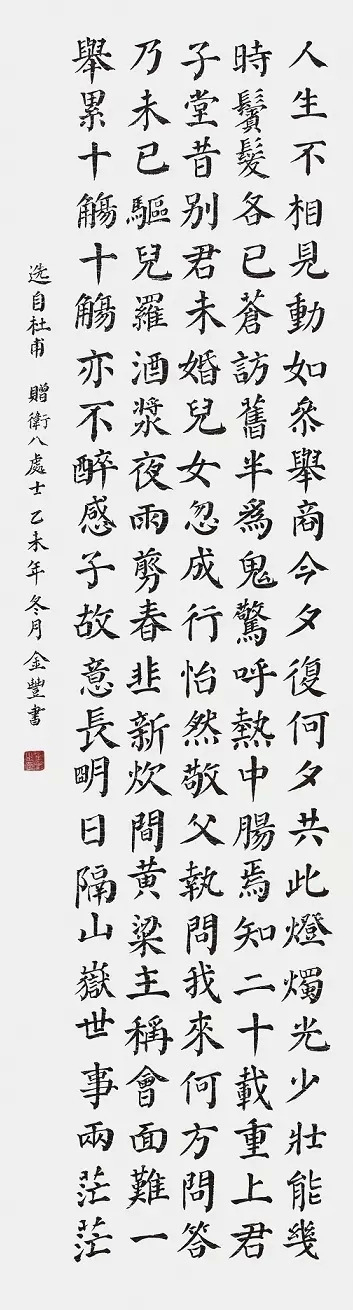 人生不相見動如叅舉商今夕復何夕共此燈燭光少壯能幾
時鬢髮各已蒼訪舊半爲鬼驚呼熱中腸焉知二十載重上君
子堂昔别君未婚兒女忽成行怡然敬父執問我來何方問答
乃未已驅兒羅酒漿夜雨剪春韭新炊間黄梁主稱會面難一
舉累十觴十觴亦不醉感子故意長明日隔山嶽世事兩茫茫
选自杜甫 贈衛八處士 乙未年冬月 金豐書